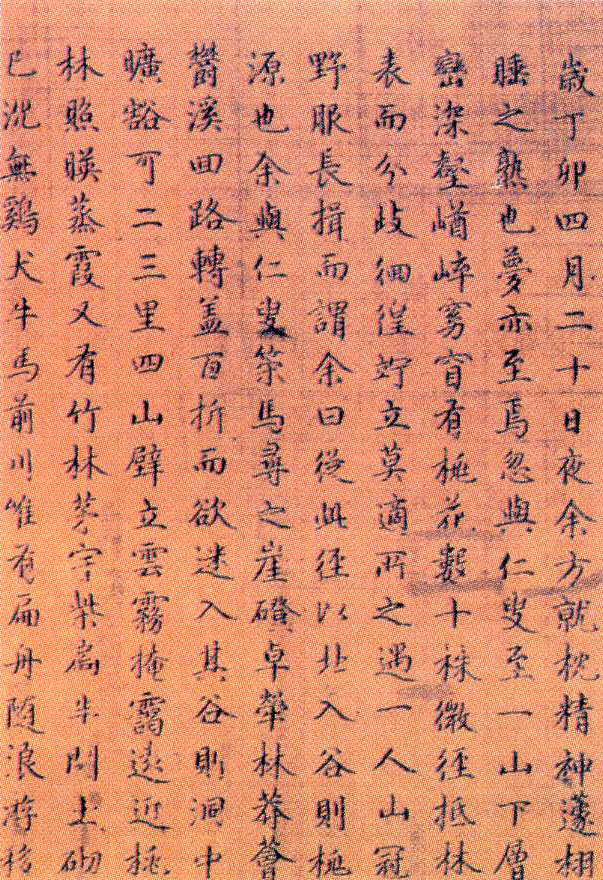 歲丁卯四月二十日夜余方就枕精神蘧栩
睡之熟也夢亦至焉忽與仁叟至一山下層
巒深壑崷崒窈窅有桃花數十株微徑抵林
表而分歧徊徨竚立莫適所之遇一人山冠
野服長揖而謂余曰從此徑以北入谷則桃
源也余與仁叟策馬尋之崖磴卓犖林莽薈
鬱溪回路轉蓋百折而欲迷入其谷則洞中
曠豁可二三里四山壁立雲霧掩靄遠近桃
林照暎蒸霞又有竹林茅宇柴扃半開土砌
已沈無鷄犬牛馬前川唯有扁舟隨浪游移